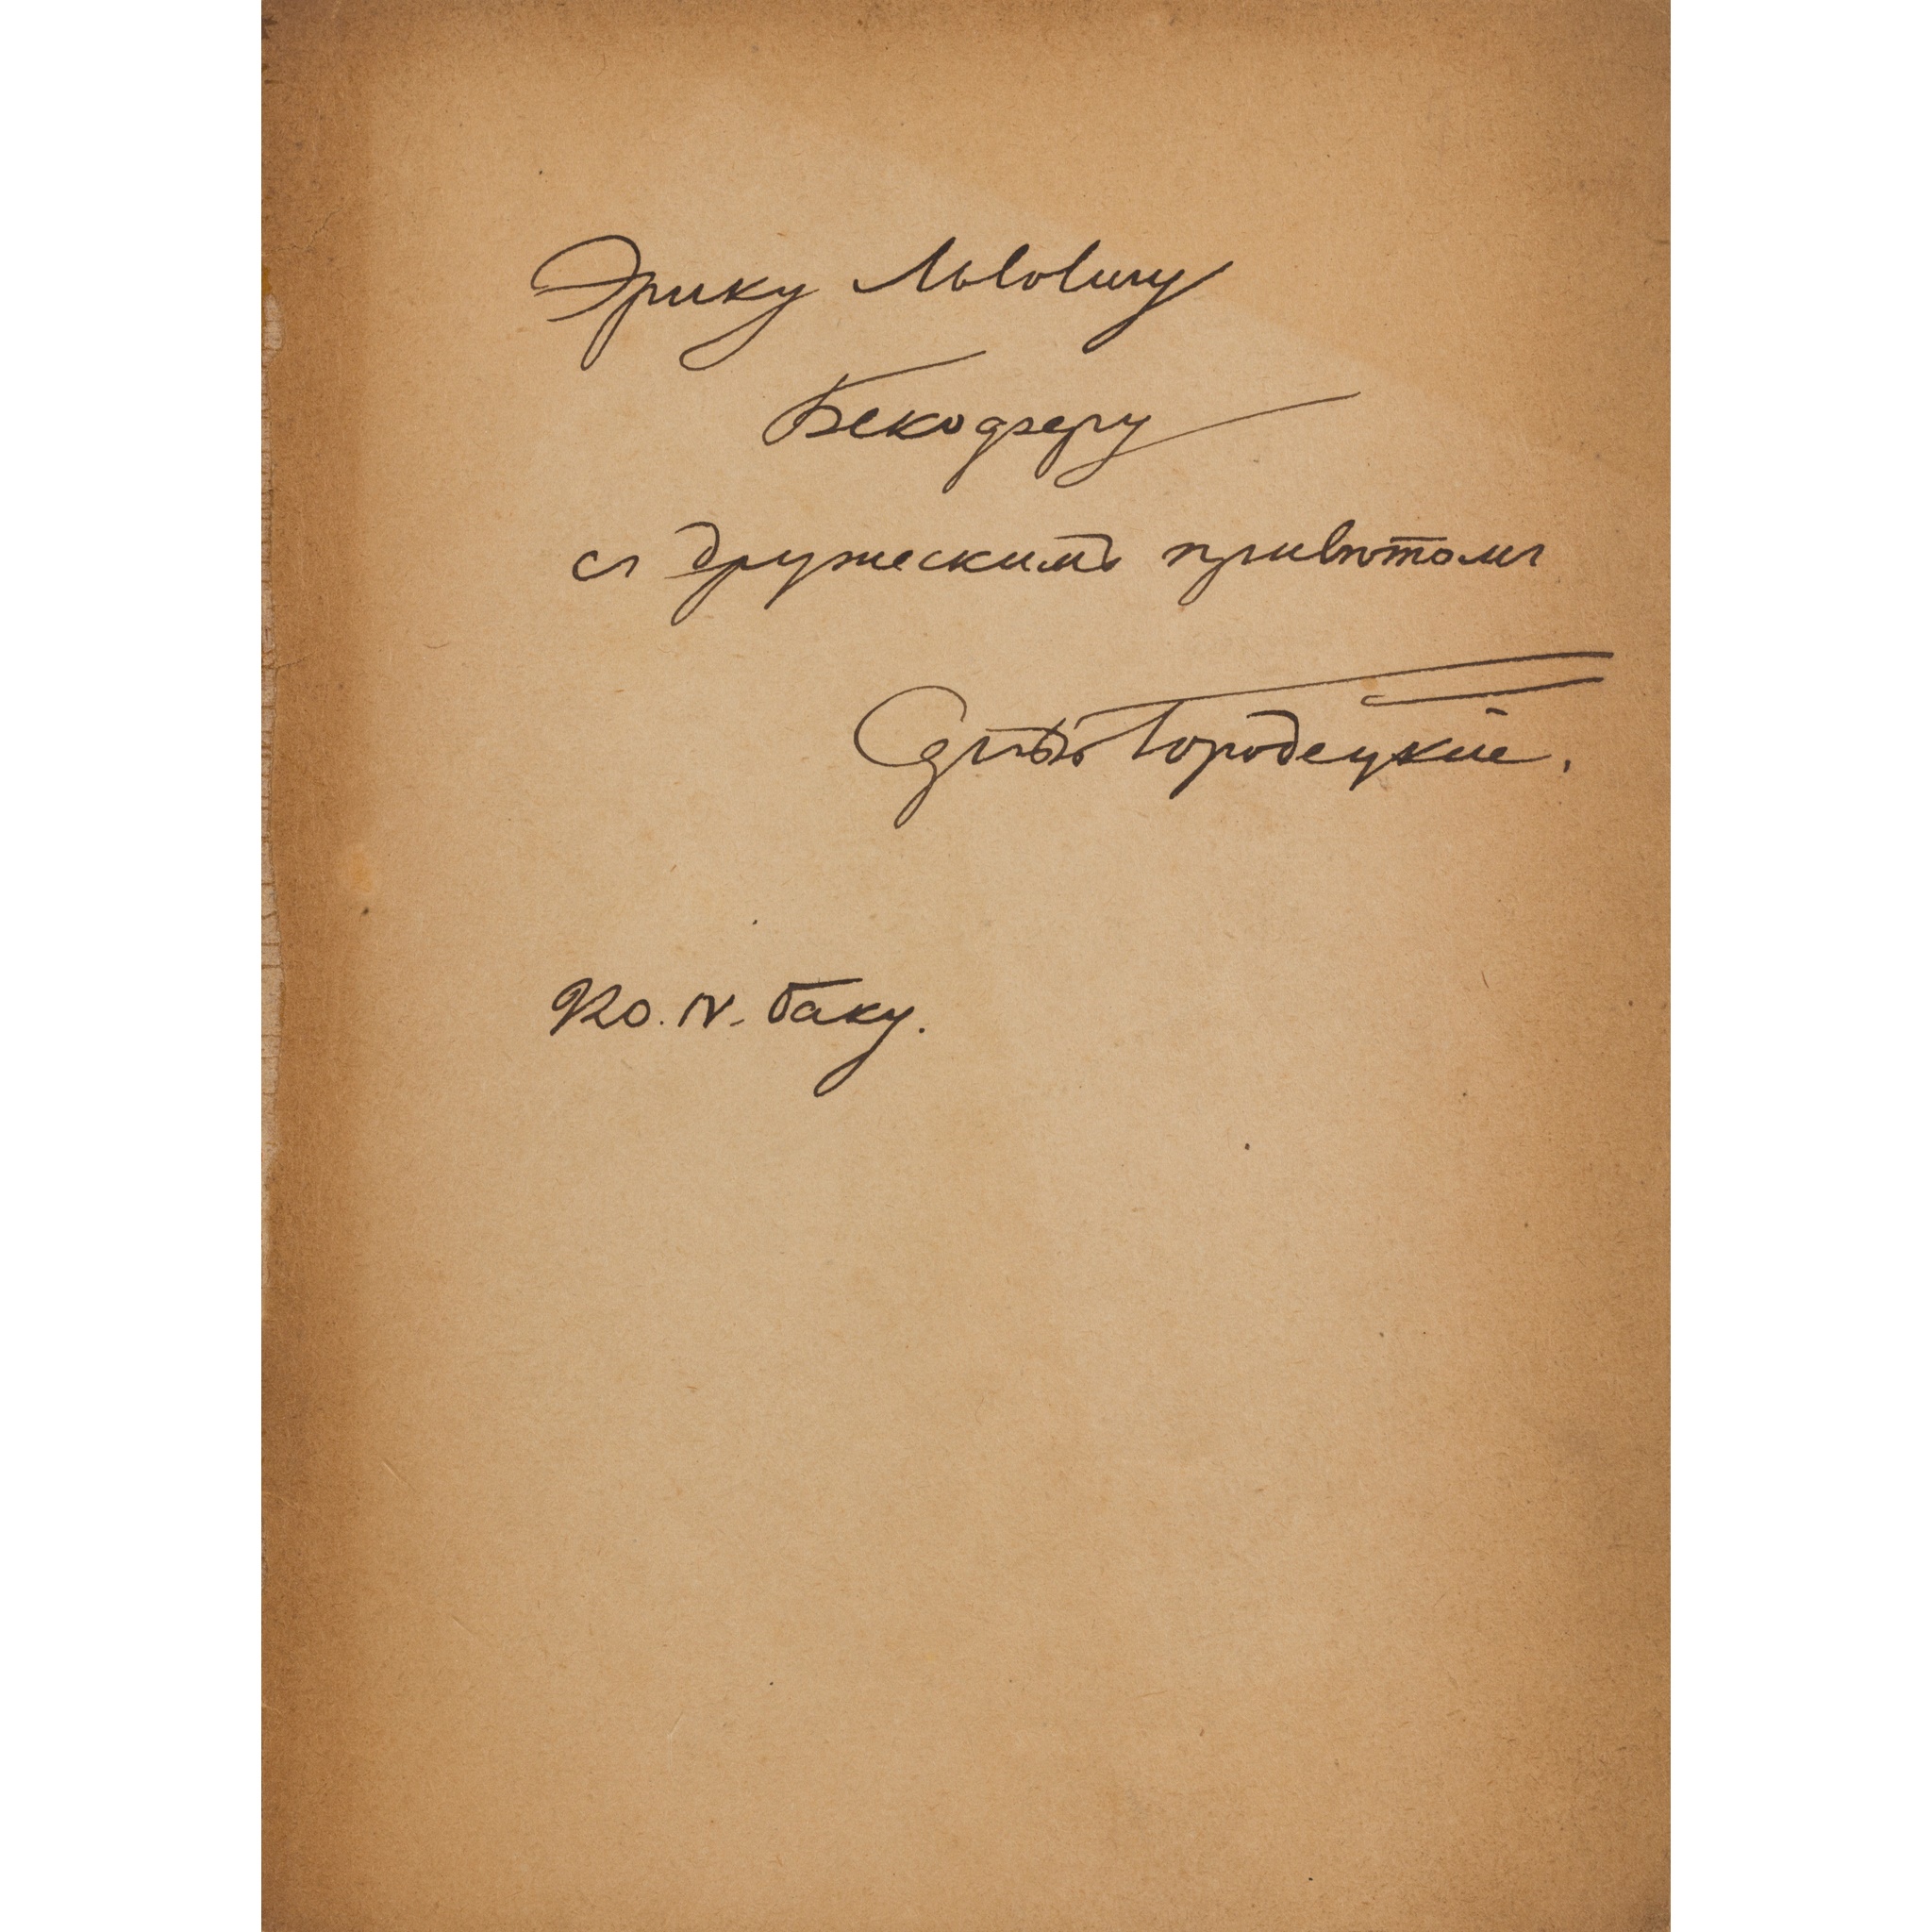 Эрику Львовичу
Бекодреру
съ дружескимъ привѣтомъ
Сергѣй Городецкiй.
920. IV. Баку.